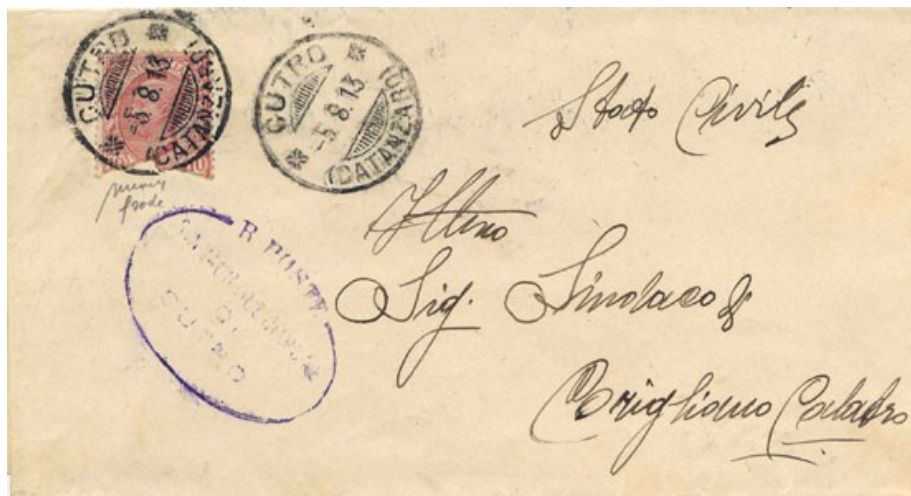 CUTRO
-5.8.13
(CATANZARO)
10 10
CUTRO
-5.8.13
(CATANZARO)
frode
R. POSTE
DI
CUTRO
Stato Civile
Ill.mo
Sig. Sindaco di
Corigliano Calabro